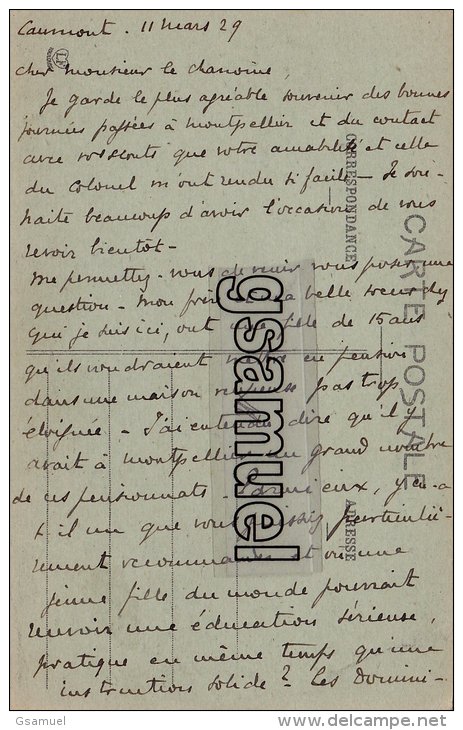 Caumont. 11 mars 29
Cher Monsieur le chanoine,
Je garde le plus agréable souvenir des bonnes
journées passées à Montpellier et du contact
avec vos scouts que votre amabilité et celle
du Colonel m'ont rendu si facile – Je sou-
haite beaucoup d'avoir l'occasion de vous
revoir bientôt –
Me permettez-vous de venir vous poser une
question – Mon frère et ma belle sœur chez
qui je suis ici, ont une fille de 15 ans
qu'ils voudraient mettre en pension
dans une maison religieuse pas trop
éloignée – J'ai entendu dire qu'il y
avait à Montpellier un grand nombre
de ces pensionnats. Parmi eux, y en a
t il un que vous puissiez particuliè-
rement recommander et où une
jeune fille du monde pourrait
recevoir une éducation sérieuse,
pratique en même temps qu'une
instruction solide ? Les Domini-
CARTE POSTALE
CORRESPONDANCE
ADRESSE
gsamuel
Gsamuel
www.delcampe.net